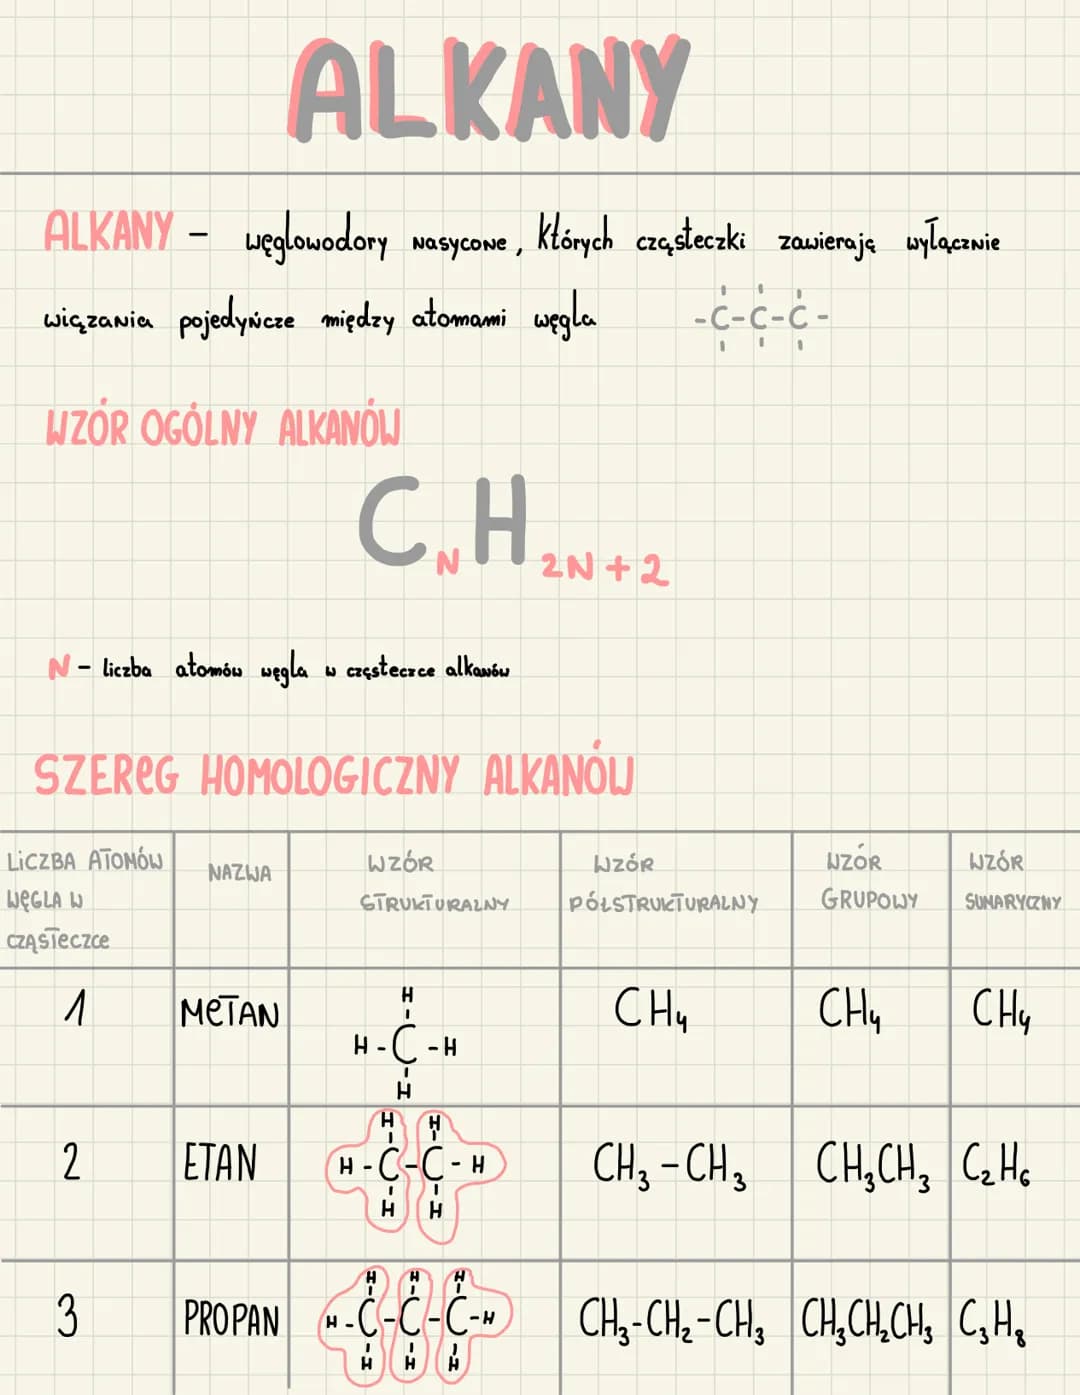 ALKANY
ALKANY - węglowodory nasycone, których cząsteczki zawierają wyłącznie
wiązania pojedyńcze między atomami węgla -C-C-C-
WZÓR OGÓLNY ALKANÓW
CNH2N+2
N - liczba atomów węgla w cząsteczce alkanów
SZEREG HOMOLOGICZNY ALKANÓW
LICZBA ATOMÓW WĘGLA W CZĄSTECZCE
NAZWA
WZÓR STRUKTURALNY
WZÓR PÓŁSTRUKTURALNY
WZÓR GRUPOWY
WZÓR SUMARYCZNY
1 METAN
H
H-C-H
H
CH4 CH4 CH4
2 ETAN
H H
H-C-C-H
H H
CH3-CH3 CH3CH3 C2H6
3 PROPAN
H H H
H-C-C-C-H
H H H
CH3-CH2-CH3 CH3CH2CH3 C3H8